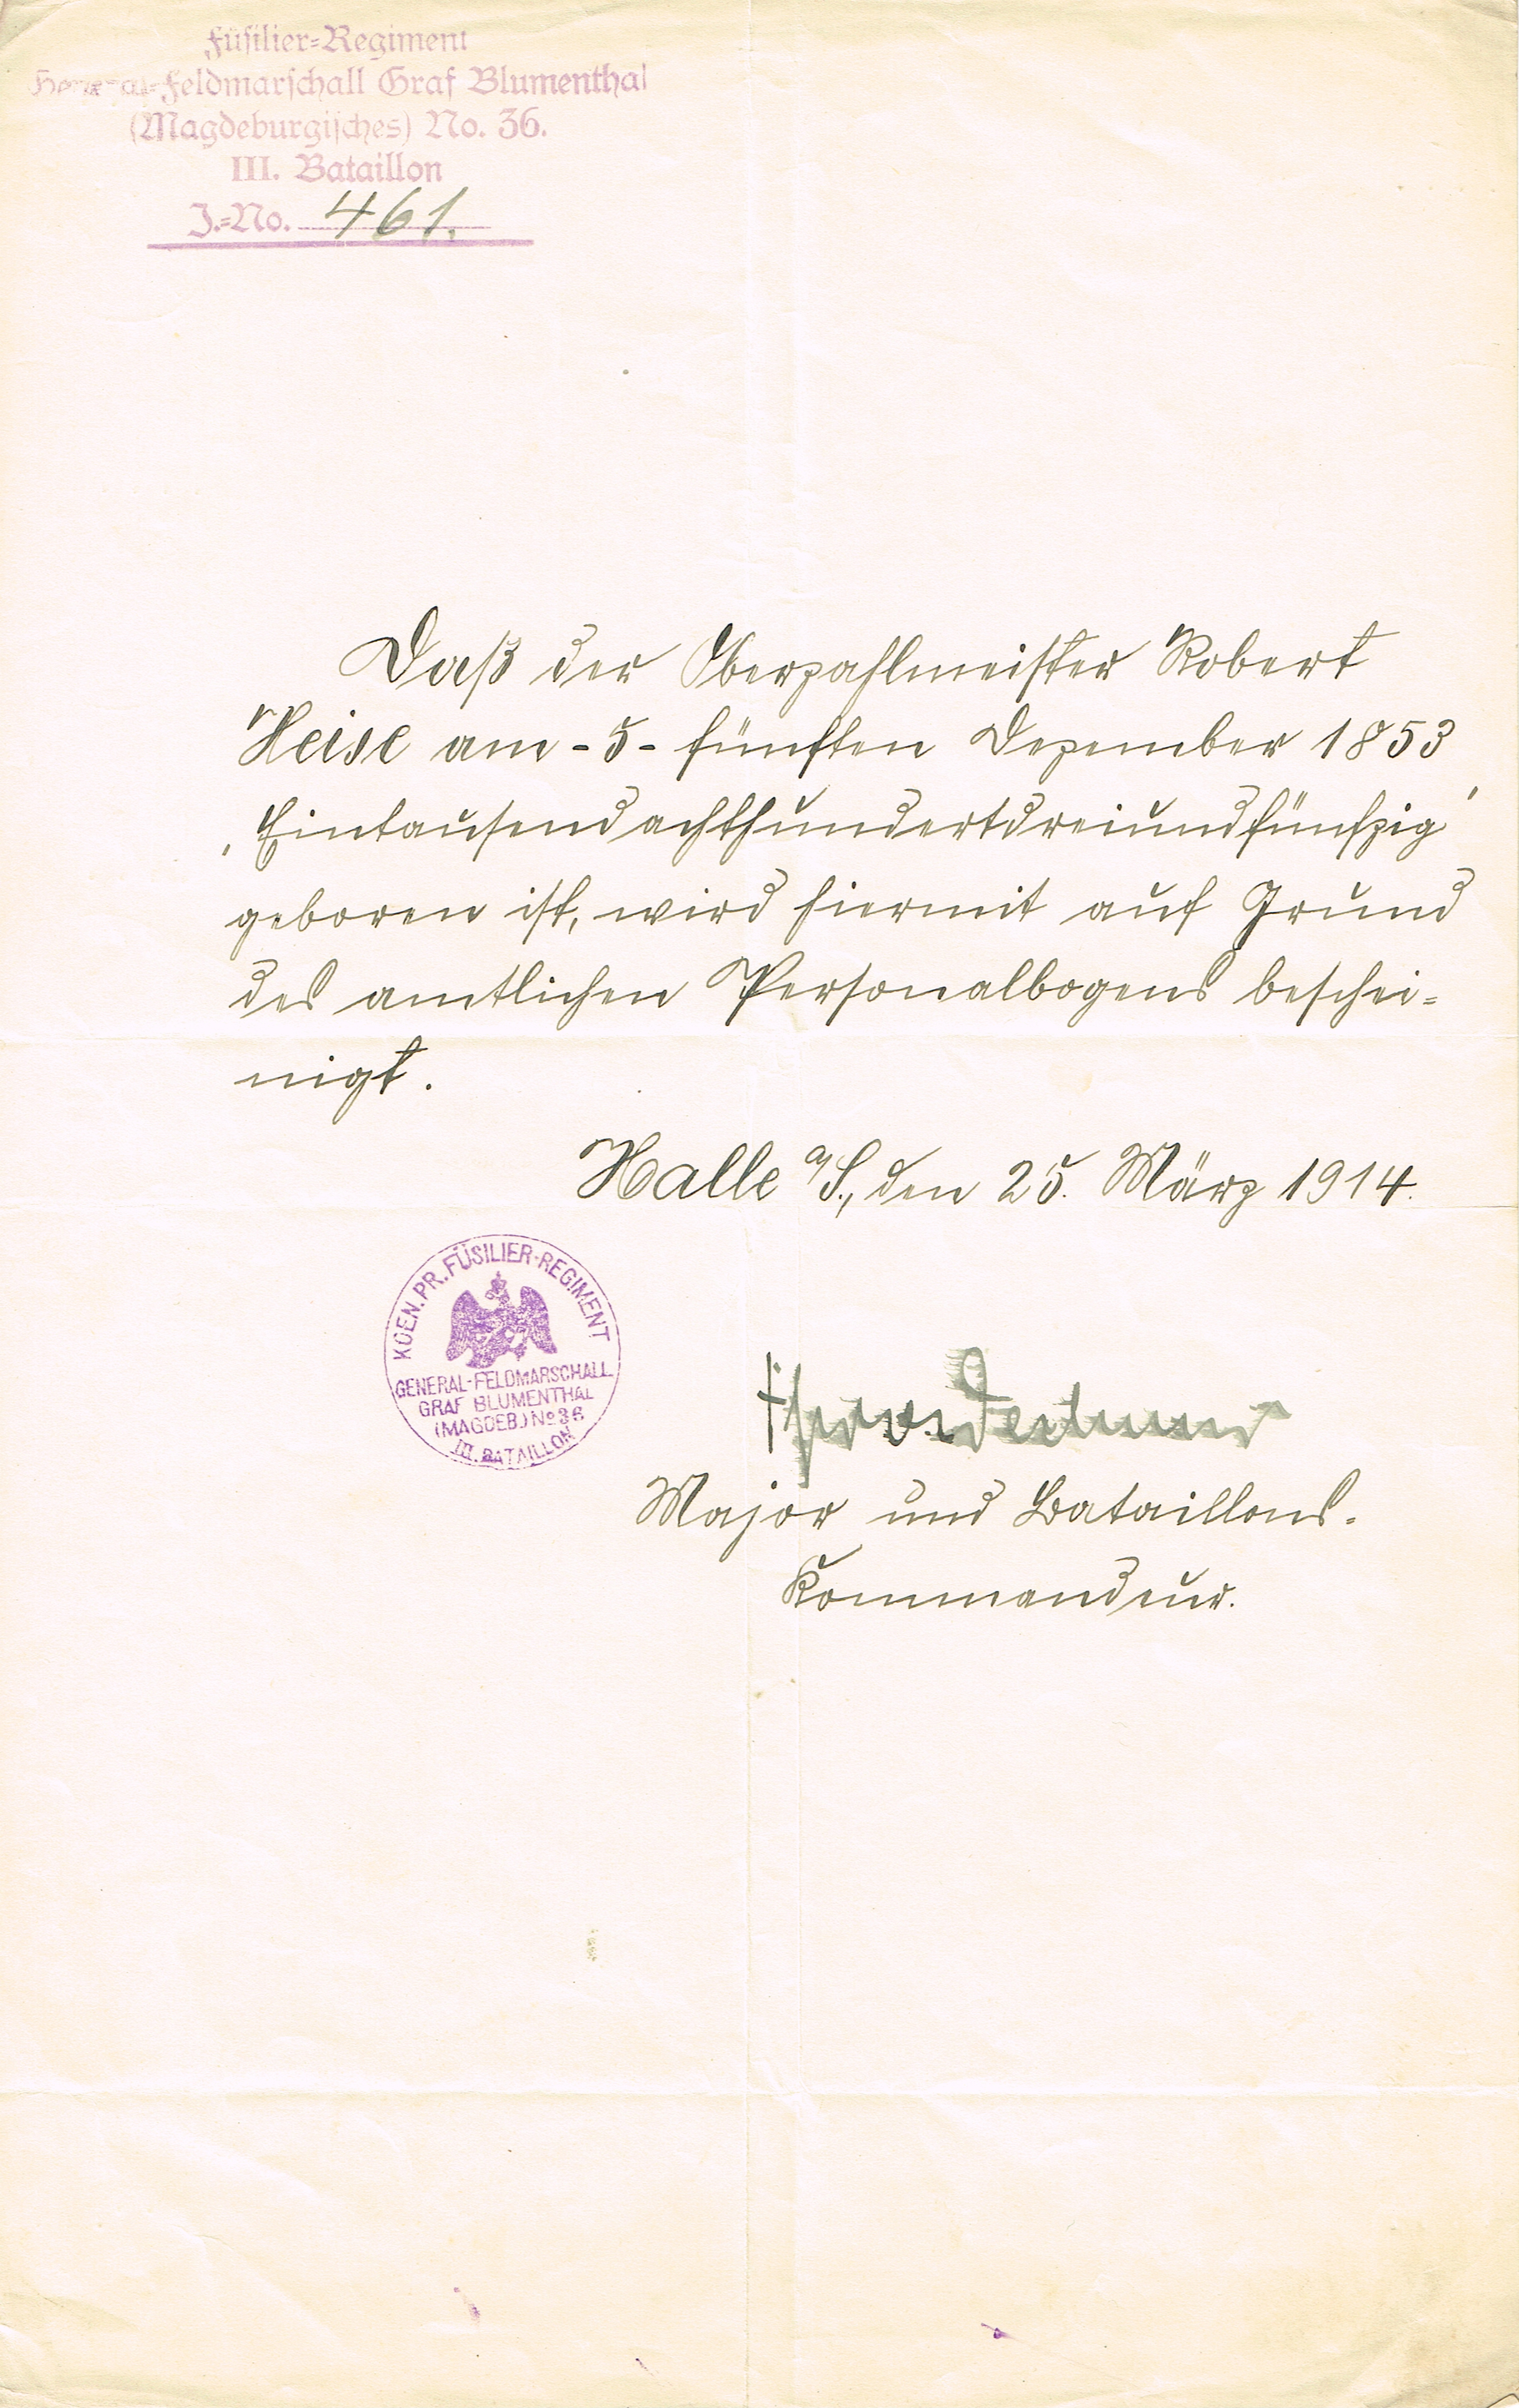 Füsilier-Regiment
General-Feldmarschall Graf Blumenthal
(Magdeburgisches) No. 36.
III. Bataillon
J.-No. 461.
Daß der Oberzahlmeister Robert
Heise am - 5 - fünften Dezember 1853
"Eintausendachthundertdreiundfünfzig"
geboren ist, wird hiermit auf Grund
des amtlichen Personalbogens beschei-
nigt.
Halle a/S., den 25. März 1914.
KOEN. PR. FÜSILIER-REGIMENT
GENERAL-FELDMARSCHALL
GRAF BLUMENTHAL
(MAGDEB.) No 36
III. BATAILLON
Major und Bataillons-
Kommandeur.